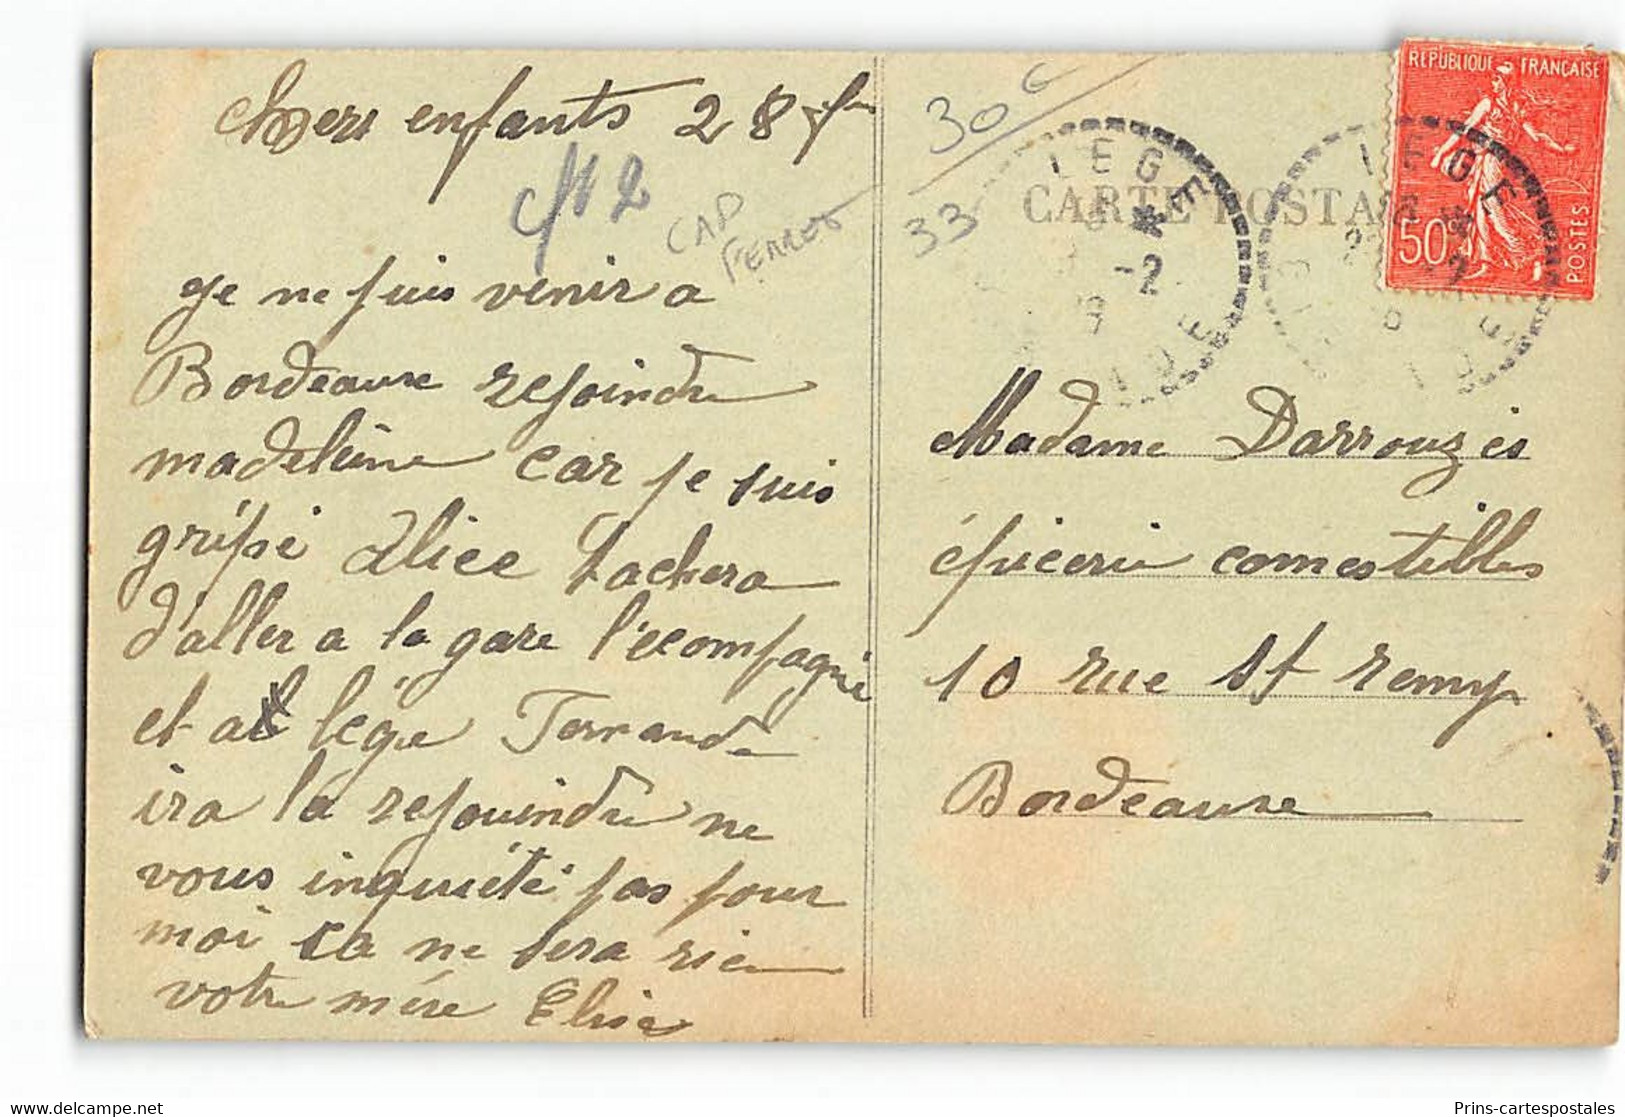 Chers enfants 28 f
cM2
CAP
FERRET
je ne puis venir a
Bordeause rejoindre
madeleine car je suis
gripsé Alice tachera
d'aller a la gare l'ecompagné
et a légé Fernande
ira la rejouindre ne
vous inquiété pas pour
moi ca ne sera rien
votre mére Elise
30 €
33
CARTE POSTA
LEGE
-2
LEGE
-2
REPUBLIQUE FRANÇAISE
50c
POSTES
Madame Darrouzés
épicerie comestilbles
10 rue St remy
Bordeause
Prins-cartespostales